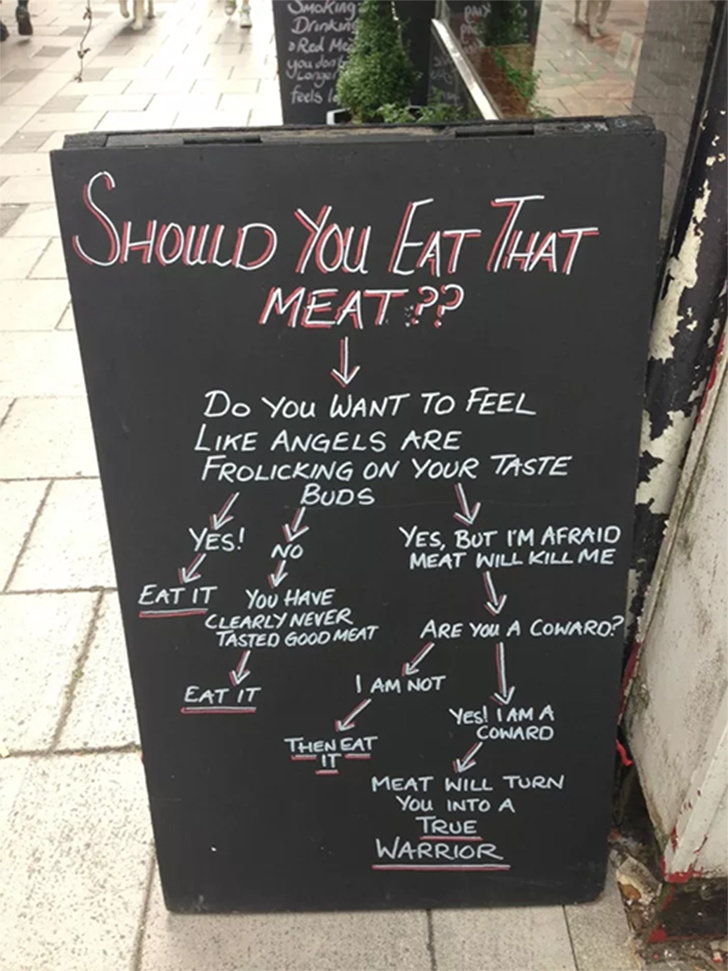 Smoking
Drinking
Red Me
you don't
Longer
feels lo
SHOULD YOU EAT THAT
MEAT??
DO YOU WANT TO FEEL
LIKE ANGELS ARE
FROLICKING ON YOUR TASTE
BUDS
YES!
NO
YES, BUT I'M AFRAID
MEAT WILL KILL ME
EAT IT
YOU HAVE
CLEARLY NEVER
TASTED GOOD MEAT
ARE YOU A COWARD?
EAT IT
I AM NOT
YES! I AM A
COWARD
THEN EAT
IT
MEAT WILL TURN
YOU INTO A
TRUE
WARRIOR